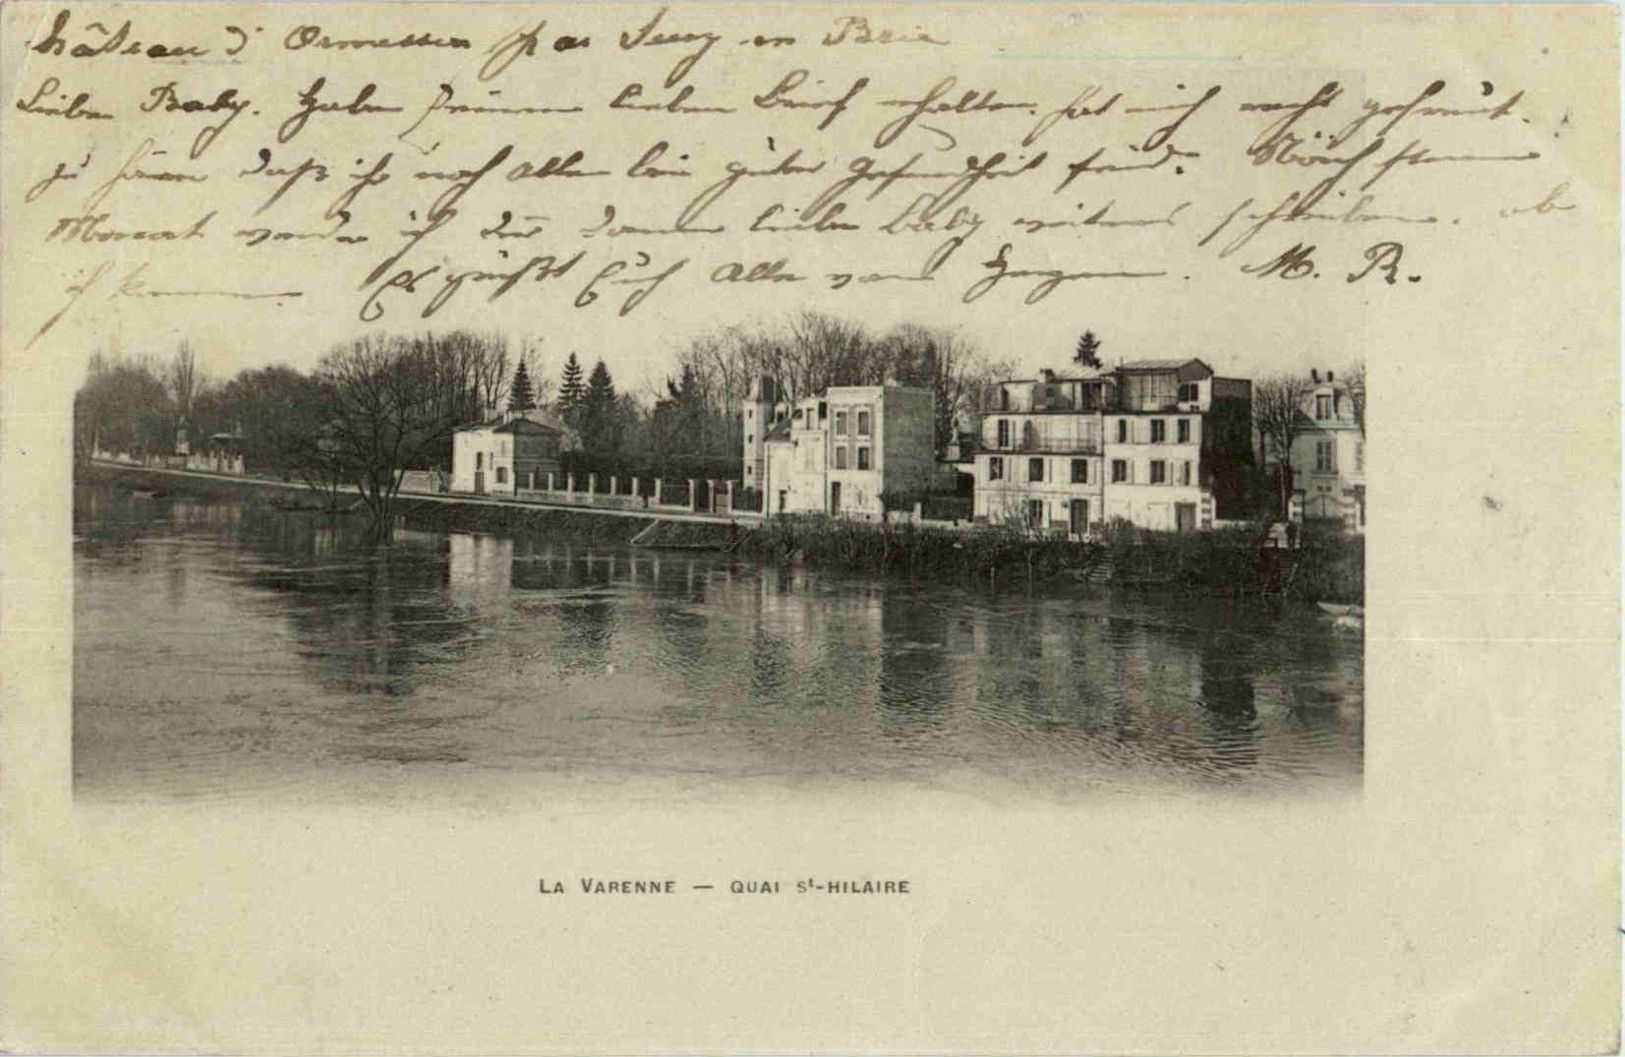 Château d'Ormesson par Sucy en Brie
Liebe Baby. Habe Deinen lieben Brief erhalten. hat mich recht gefreut.
zu hören daß ihr noch Alle bei guter Gesundheit seid. Nächsten
Monat werde ich dir dann liebe Baby weiteres schreiben. ob
ich komme. Es grüßt Euch Alle von Herzen. M. R.
LA VARENNE — QUAI St-HILAIRE